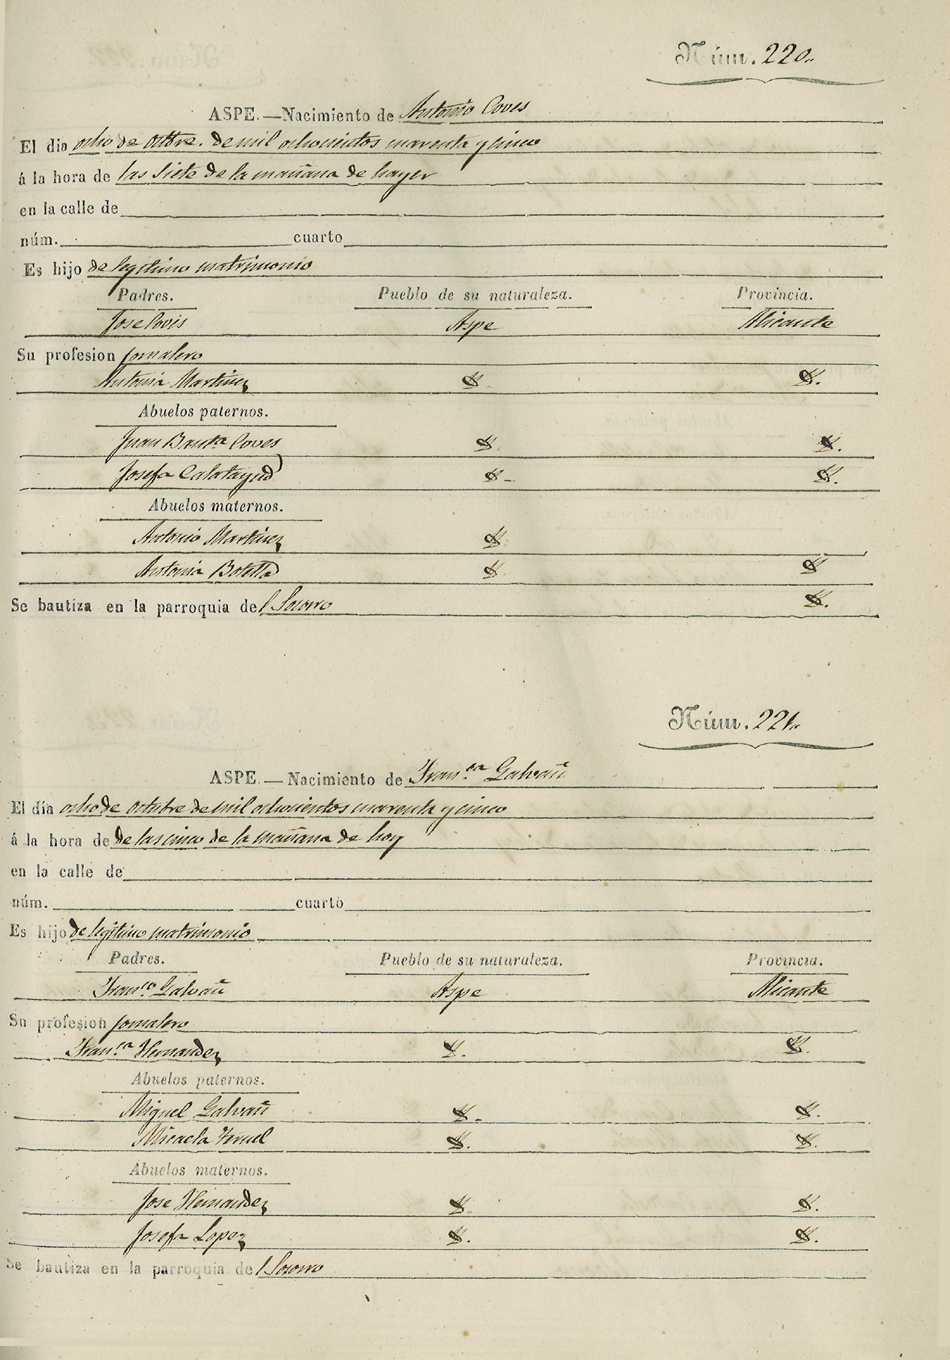 Núm. 220.
ASPE.—Nacimiento de Antonio Coves
El dia ocho de octbre. de mil ochocientos cuarenta y cinco
á la hora de las siete de la mañana de hayer
en la calle de
núm. cuarto
Es hijo de legitimo matrimonio
Padres. Pueblo de su naturaleza. Provincia.
Jose Covis Aspe Alicante
Su profesion jornalero
Antonia Martinez
Abuelos paternos.
Juan Bauta Coves
Josefa Calatayud
Abuelos maternos.
Antonio Martinez
Antonia Botella
Se bautiza en la parroquia del Socorro
Núm. 221.
ASPE.—Nacimiento de Franca Galvañ
El día ocho de octubre de mil ochocientos cuarenta y cinco
á la hora de de las cinco de la mañana de hoy
en la calle de
núm. cuarto
Es hijo de legitimo matrimonio
Padres. Pueblo de su naturaleza. Provincia.
Franco Galvañ Aspe Alicante
Su profesion jornalero
Franca Hernandez
Abuelos paternos.
Miguel Galvañ
Micaela
Abuelos maternos.
Jose Hernandez
Josefa Lopez
Se bautiza en la parroquia del Socorro